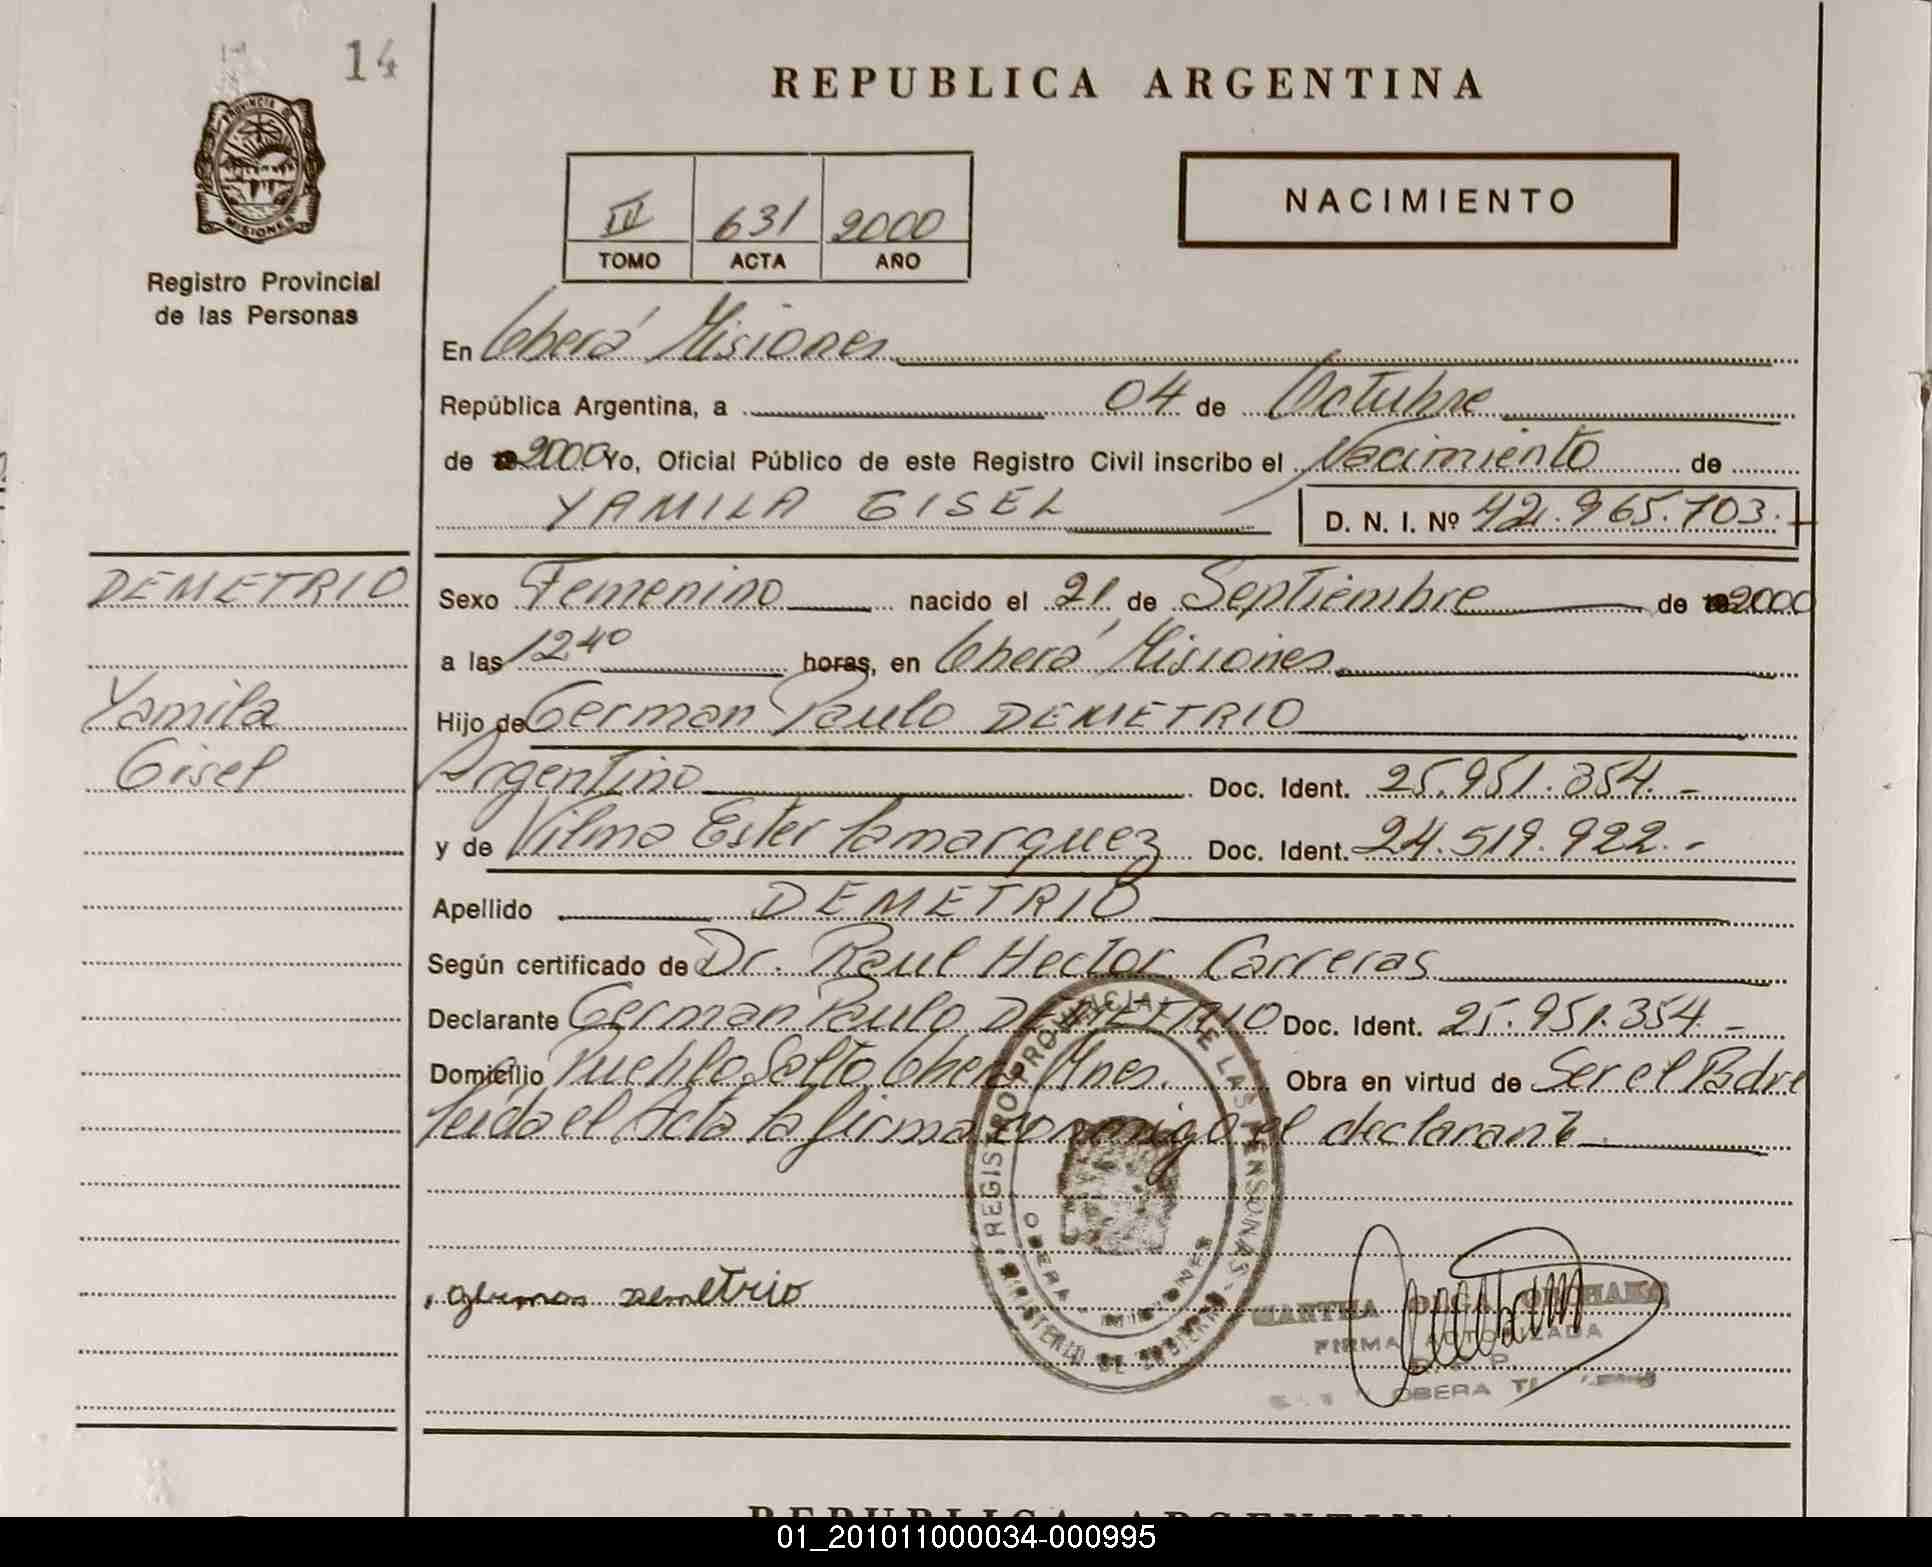 14
REPUBLICA ARGENTINA
PROVINCIA DE
MISIONES
Registro Provincial
de las Personas
631 2000
TOMO ACTA AÑO
NACIMIENTO
En Oberá Misiones
República Argentina, a 04 de Octubre
de 2000 Yo, Oficial Público de este Registro Civil inscribo el Nacimiento de
YAMILA GISEL D. N. I. Nº 42.965.703.
DEMETRIO
Yamila
Gisel
Sexo Femenino nacido el 21 de Septiembre de 2000
a las 12 40 horas, en Oberá Misiones
Hijo de German Paulo DEMETRIO
Argentino Doc. Ident. 25.951.354.-
y de Vilma Ester Lamarquez Doc. Ident. 24.519.922.-
Apellido DEMETRIO
Según certificado de Dr. Raul Hector Carreras
Declarante German Paulo DEMETRIO Doc. Ident. 25.951.354-
Domicilio Pueblo Salto Oberá Mnes. Obra en virtud de Ser el Padre
Leida el Acta la firma conmigo el declarante
REGISTRO PROVINCIAL DE LAS PERSONAS
OBERA - MISIONES
MINISTERIO DE GOBIERNO
german demetrio
MARTHA OLGA
FIRMA AUTORIZADA
R. P. P.
OBERA
REPUBLICA ARGENTINA
01_201011000034-000995